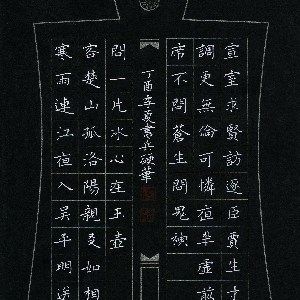 宣室求賢訪逐臣賈生才
調更無倫可憐夜半虛前
席不問蒼生問鬼神
丁酉年夏書
問一片冰心在玉壺
客楚山孤洛陽親友如相
寒雨連江夜入吳平明送